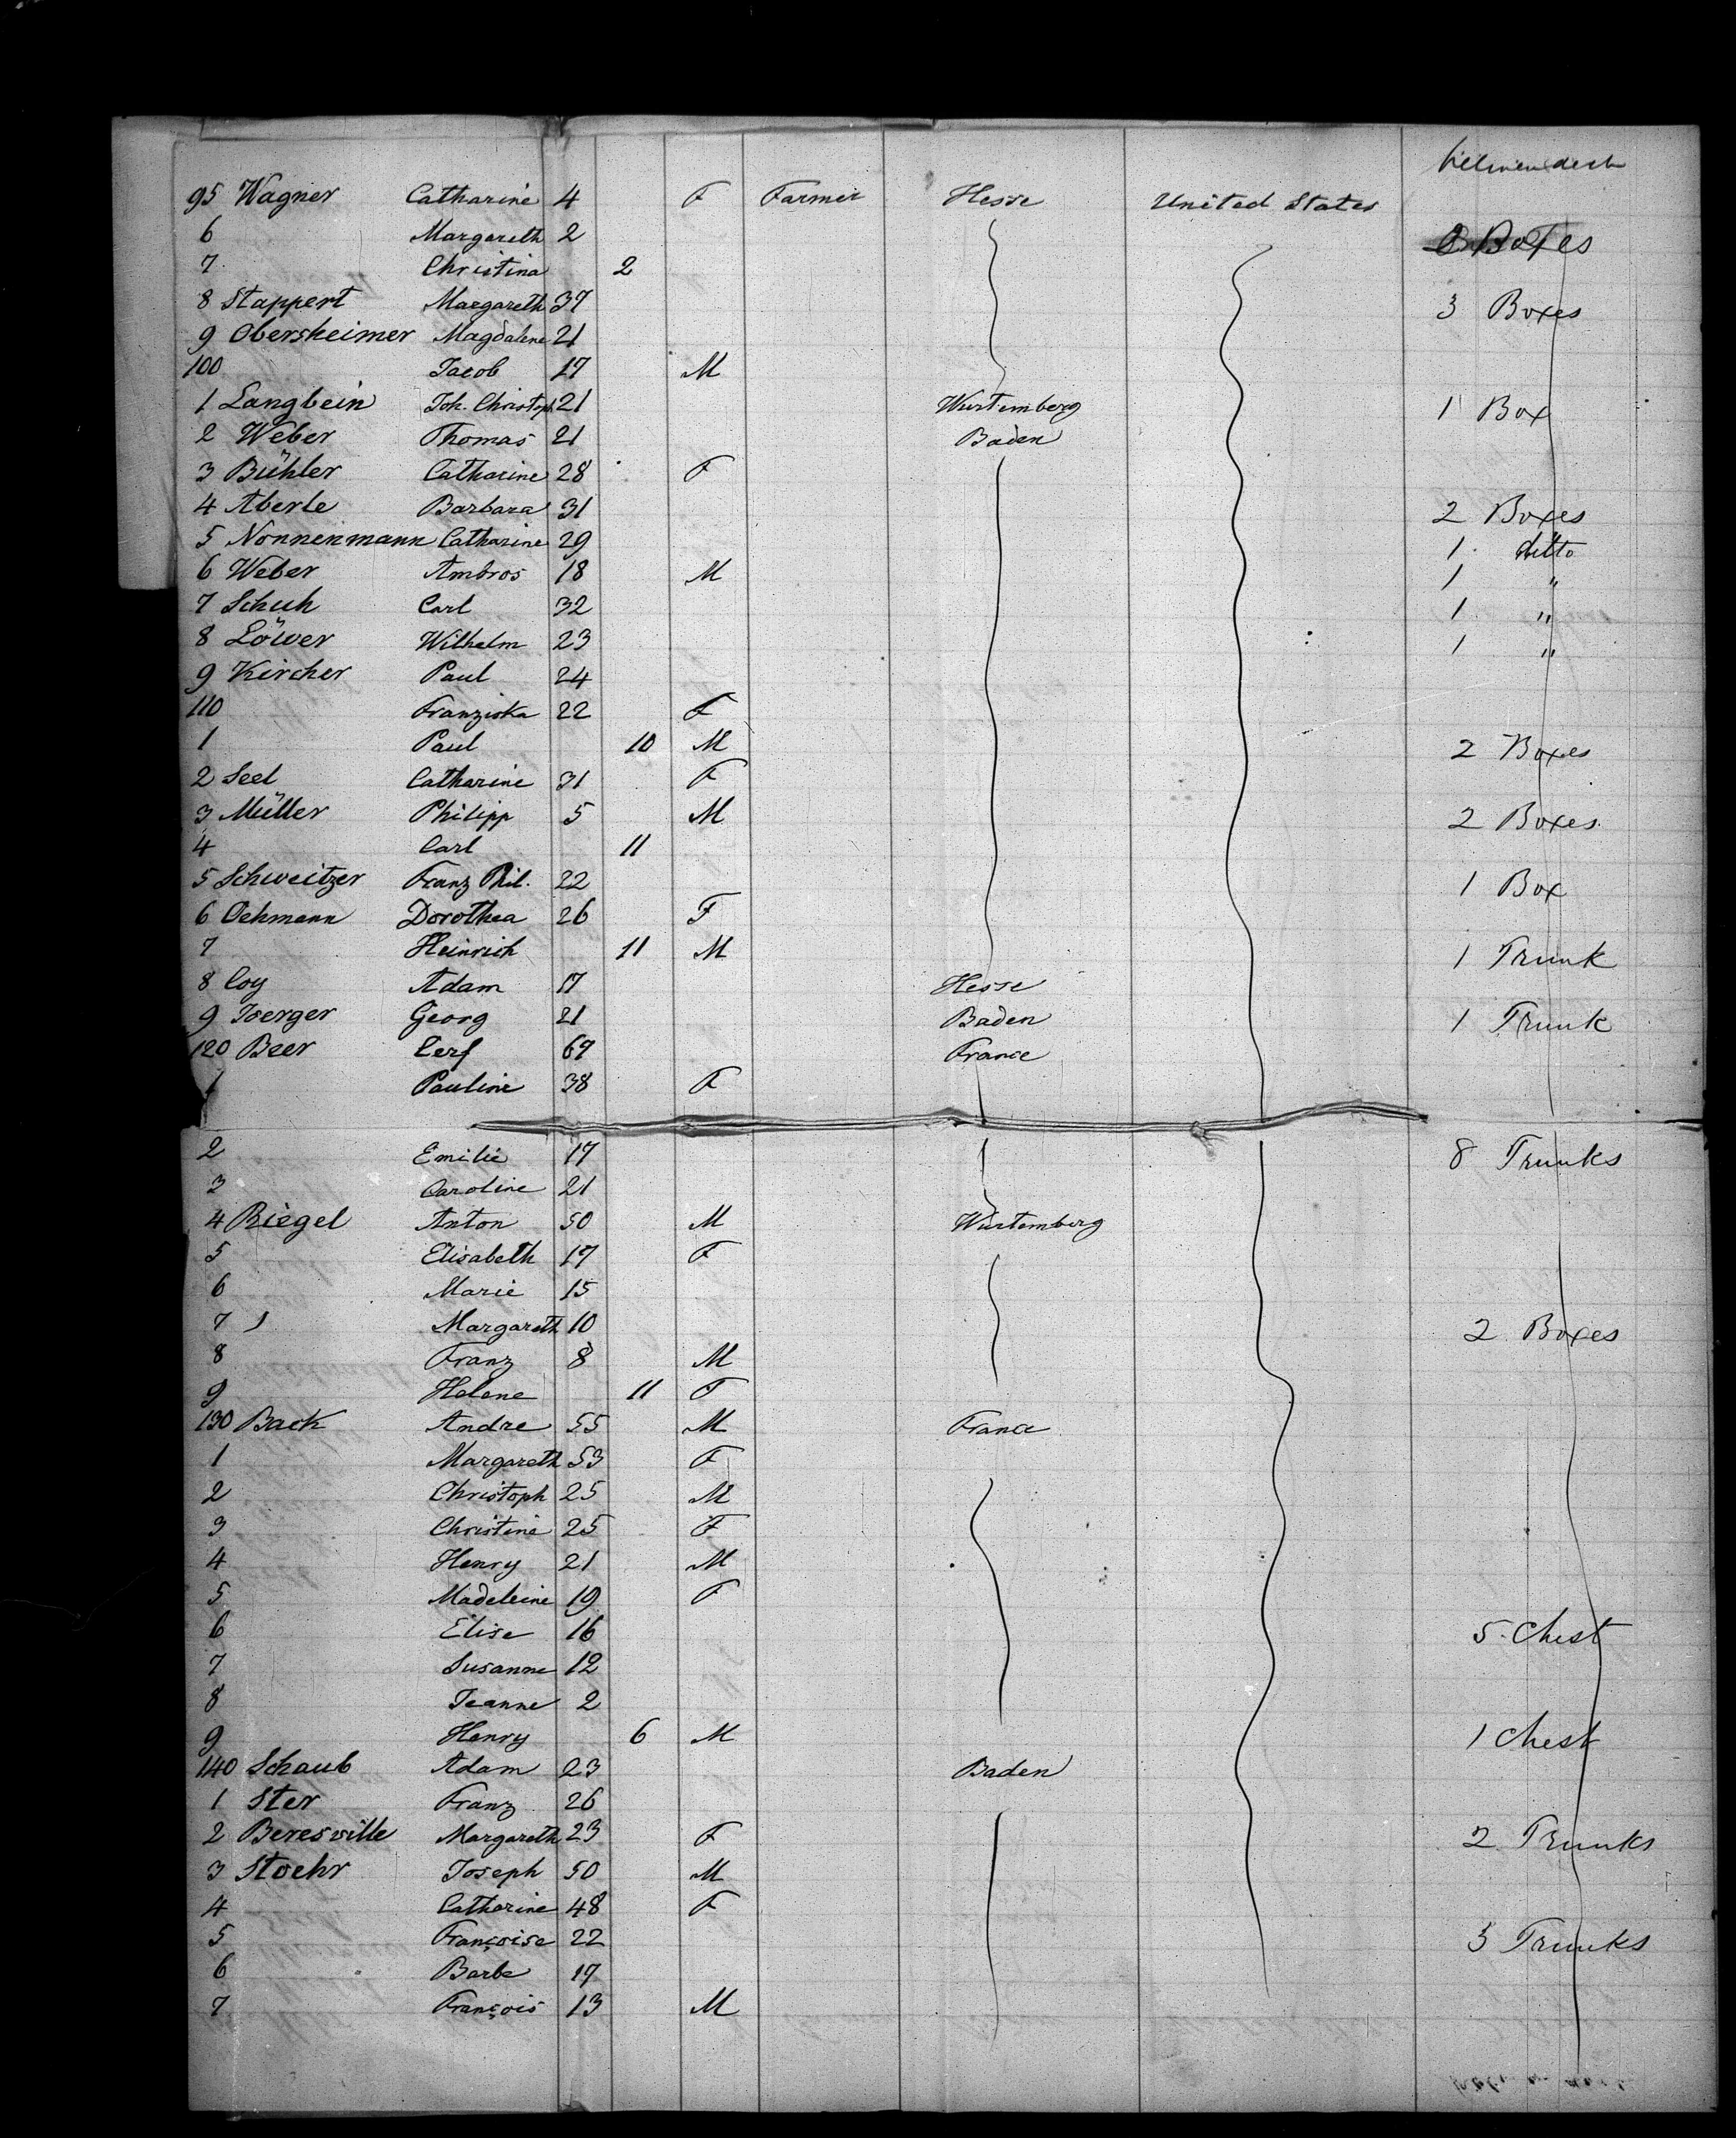 between deck
95 Wagner Catharine 4 F Farmer Hesse United States
6 Margareth 2 Boxes
7 Christina 2
8 Stappert Margareth 37 3 Boxes
9 Obersheimer Magdalene 21
100 Jacob 17 M
1 Langbein Joh. Christoph 21 Wurtemberg 1 Box
2 Weber Thomas 21 Baden
3 Bühler Catharine 28 F
4 Aberle Barbara 31 2 Boxes
5 Nonnenmann Catharine 29 1 ditto
6 Weber Ambros 18 M 1 "
7 Schuh Carl 32 1 "
8 Löwer Wilhelm 23 1 "
9 Kircher Paul 24
110 Franziska 22 F
1 Paul 10 M 2 Boxes
2 Seel Catharine 31 F
3 Müller Philipp 5 M 2 Boxes
4 Carl 11
5 Schweitzer Franz Phil. 22 1 Box
6 Oehmann Dorothea 26 F
7 Heinrich 11 M 1 Trunk
8 Coy Adam 17 Hesse
9 Joerger Georg 21 Baden 1 Trunk
120 Beer Cerf 67 France
1 Pauline 38 F
2 Emilie 17 8 Trunks
3 Caroline 21
4 Riegel Anton 50 M Wurtemberg
5 Elisabeth 17 F
6 Marie 15
7 Margareth 10 2 Boxes
8 Franz 8 M
9 Helene 11 F
130 Back Andre 55 M France
1 Margareth 53 F
2 Christoph 25 M
3 Christine 25 F
4 Henry 21 M
5 Madeleine 19 F
6 Elise 16 5 Chest
7 Susanne 12
8 Jeanne 2
9 Henry 6 M 1 Chest
140 Schaub Adam 23 Baden
1 Ster Franz 26
2 Beresville Margareth 23 F 2 Trunks
3 Stoehr Joseph 50 M
4 Catharine 48 F
5 Françoise 22 3 Trunks
6 Barbe 17
7 François 13 M